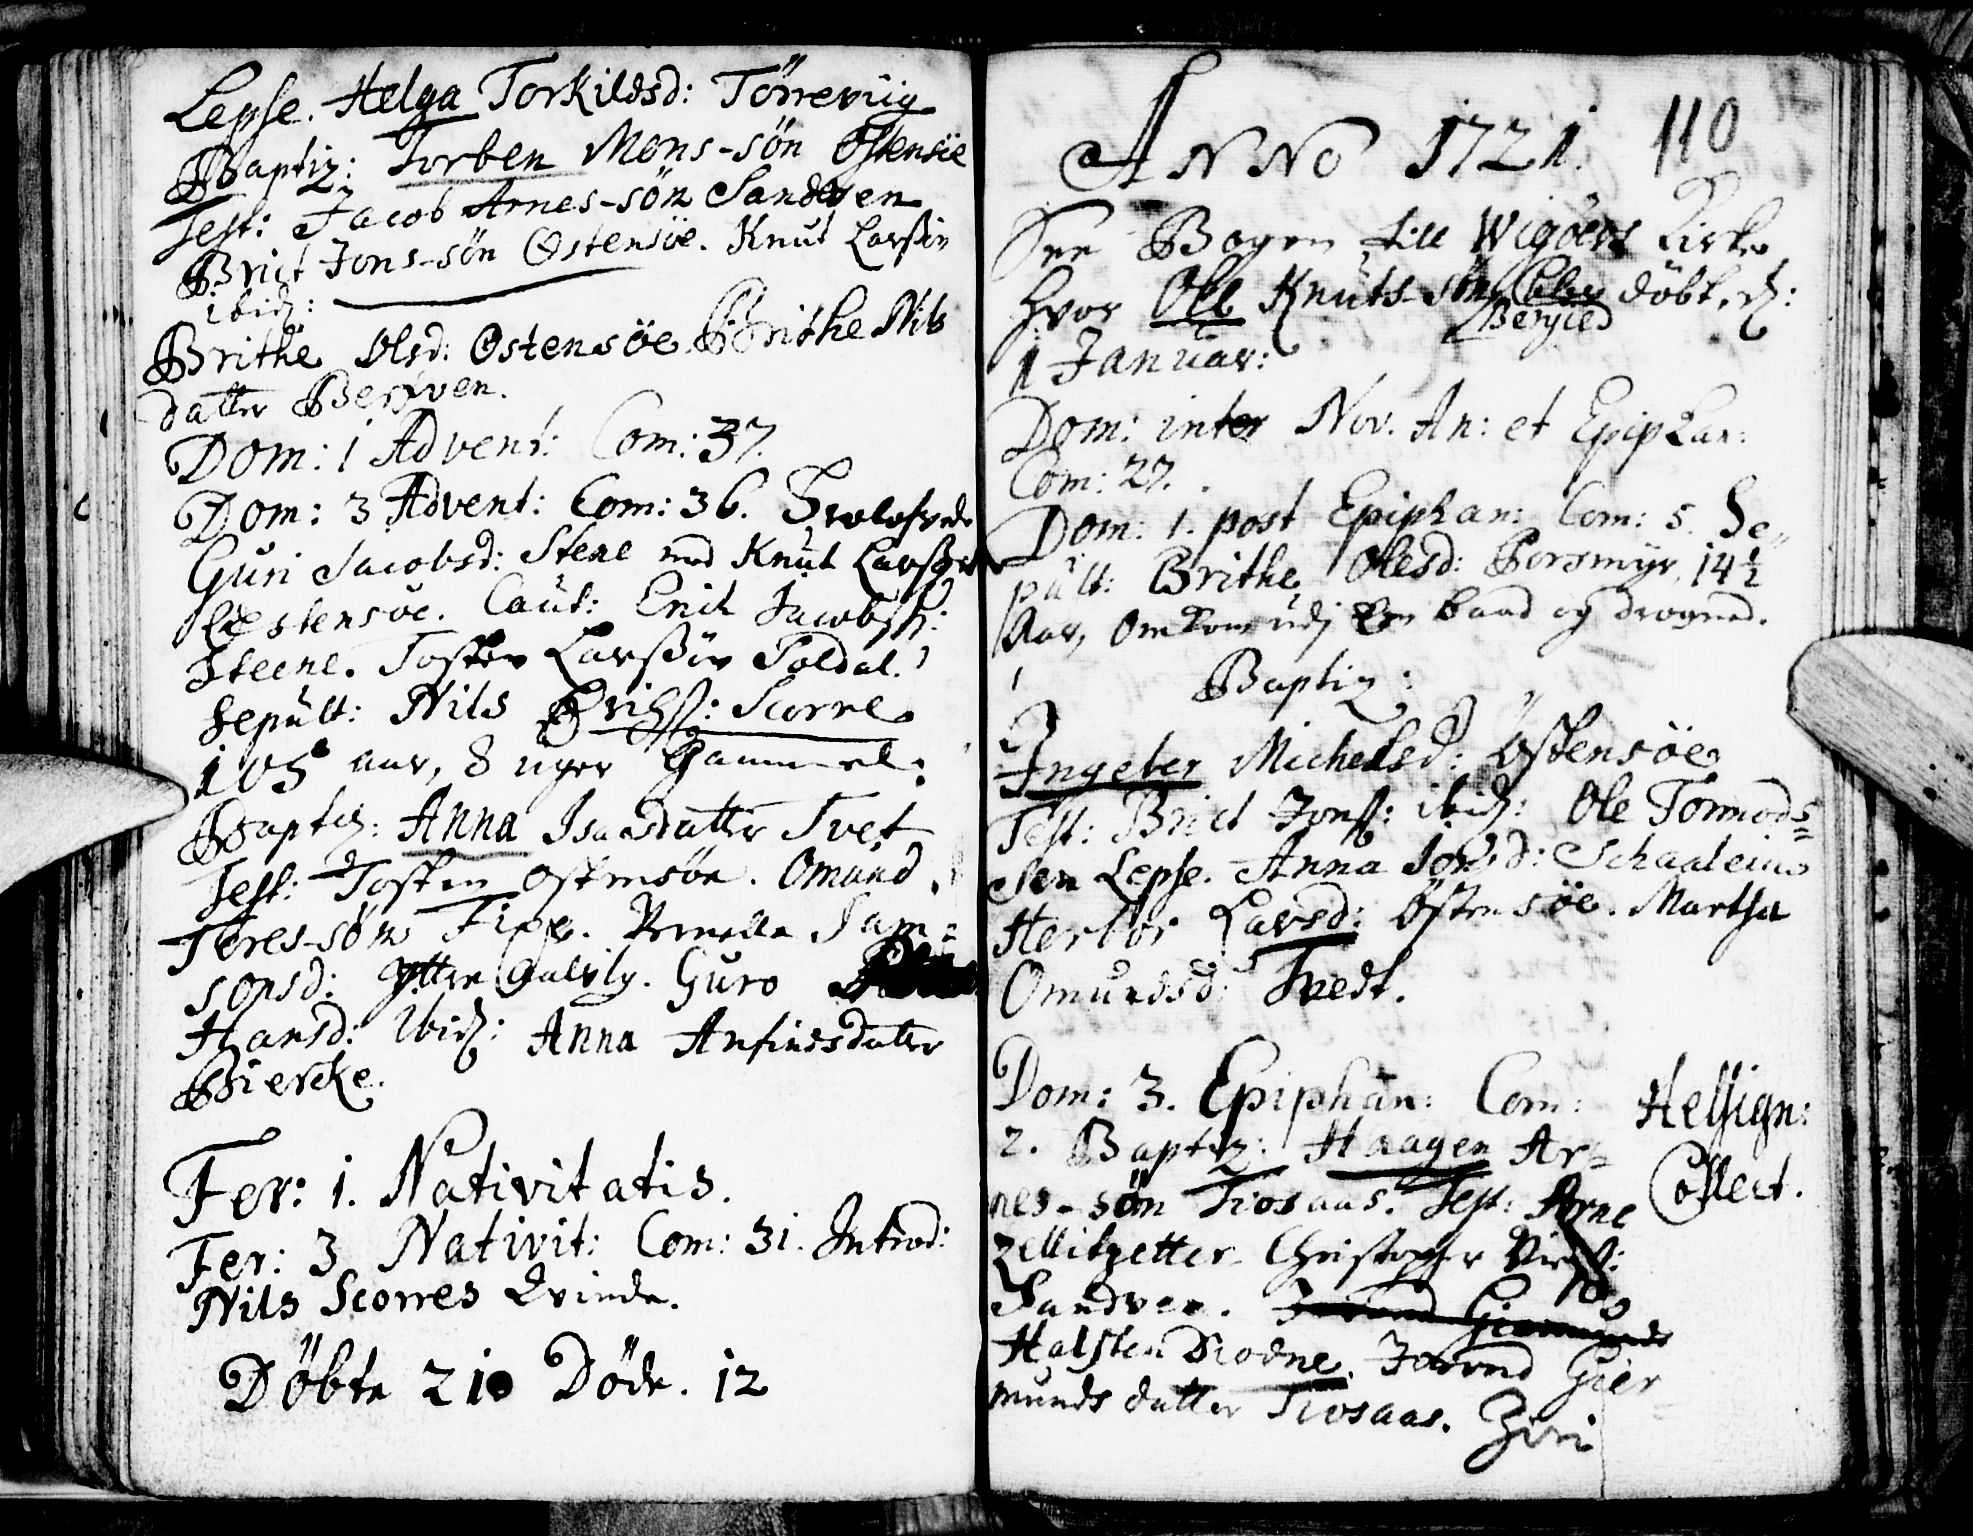 Lepse. Helga Torkildsd: Törrevüig
Baptiz: Torben Mons-sön Ostensöe
Test: Jacob Arnes-sön Sandven
Brict Jons-sön Ostensöe. Knut Larssön
ibid:
Brithe Olsd: Ostensöe Brithe Nils
datter Berven.
Dom: 1 Advent: Com: 37.
Dom: 3 Advent: Com: 36. Trolofvede
Guri Jacobsd: Stene med Knut Larssön
Ostensöe. Caut: Erich Jacobss:
Steene. Tosten Larssön Soldat.
Sepult: Nils Erichss: Scorre
105 aar, 8 uger Gammel.
Baptiz: Anna Isacsdatter Tvet
Test: Tosten Ostensöe. Omund
Tores-søn Fixe. Pernella Sam=
sonsd: Ytter Aalvig. Guro
Hansd: ibid: Anna Anfindsdatter
Biercke.
Fer: 1. Nativitatis.
Fer: 3 Nativit: Com: 31. Introd:
Nils Scorres Kvinde.
Döbte 21 Döde. 12
ANNO 1721. 110
See Bogen till Wigöers Kirke
hvor Ole Knuts-sön döbt, d:
Berged
1 Januar:
Dom: inter Nov. An: et Epiphan:
Com: 27.
Dom: 1. post Epiphan: Com: 5. Se=
pult: Brithe Olesd: Porsmyr, 14½
Aar, omkom udj en baad og drogned.
Baptiz:
Ingeber Michelsd: Ostensöe
Test: Brict Jonss: ibid: Ole Tormods=
sen Lepse. Anna Jonsd: Schaalein
Herbor Larsd: Ostensöe. Martha
Omundsd: Tvedt.
Dom: 3. Epiphan: Com: Helsign:
2. Baptiz: Haagen Ar= Collect.
nes-sön Tiosaas. Test: Arne
Zellitzetter Christopher
Sandven.
Halsten Diodne. Jorend Gier
munds datter Tiosaas. Ziri